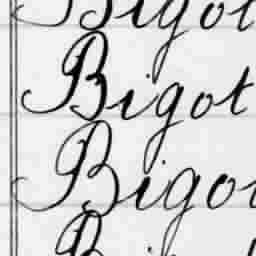 Bigot
Bigot
Bigot
Bi